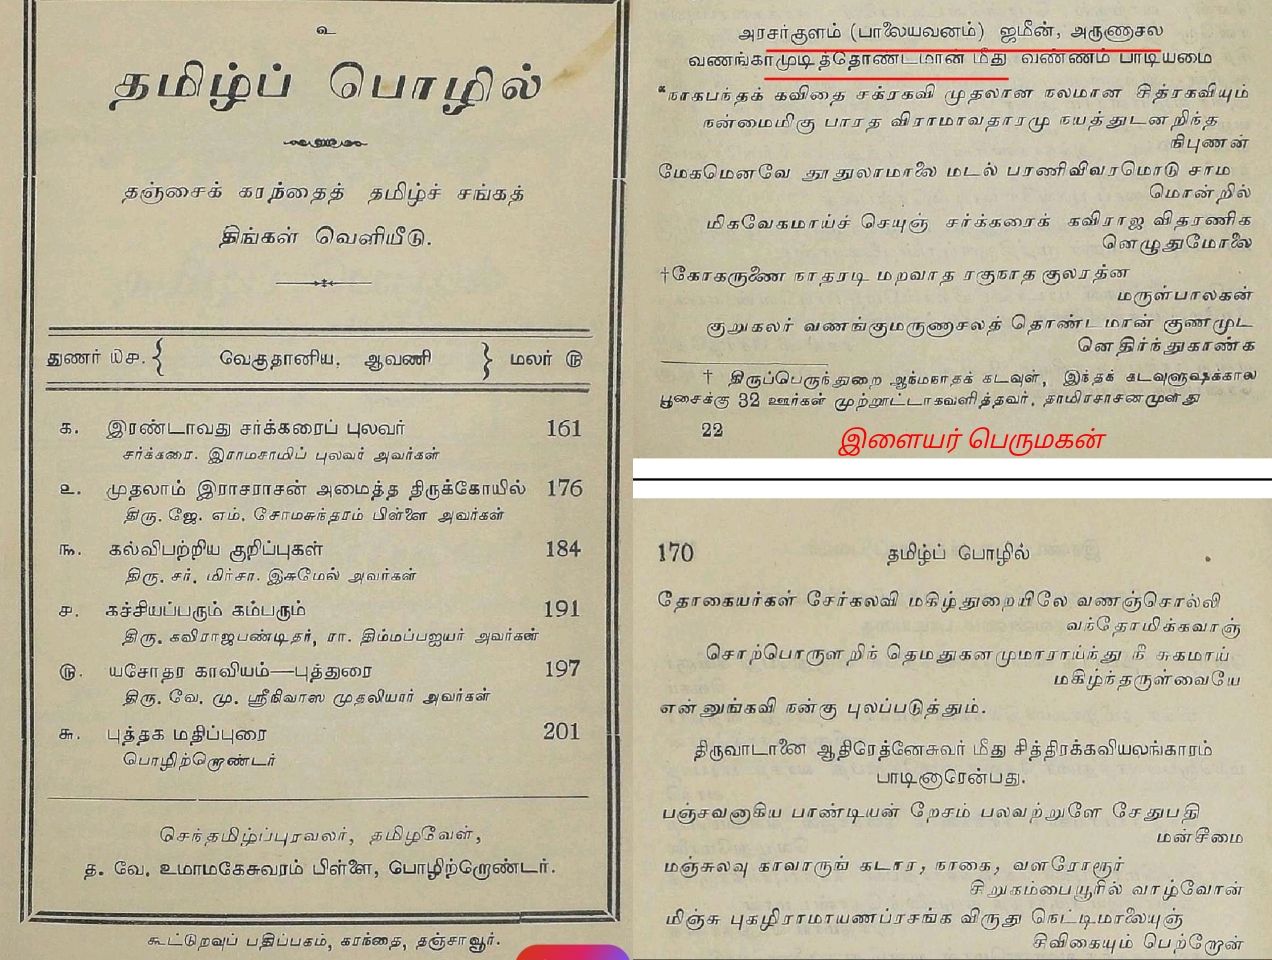 உ
தமிழ்ப் பொழில்
தஞ்சைக் கரந்தைத் தமிழ்ச் சங்கத்
திங்கள் வெளியீடு.
துணர் ௰௪. { வேகுதானிய, ஆவணி } மலர் ௫
௧. இரண்டாவது சர்க்கரைப் புலவர் 161
சர்க்கரை. இராமசாமிப் புலவர் அவர்கள்
௨. முதலாம் இராசராசன் அமைத்த திருக்கோயில் 176
திரு. ஜே. எம். சோமசுந்தரம் பிள்ளை அவர்கள்
௩. கல்விபற்றிய குறிப்புகள் 184
திரு. சர். மிர்சா. இசுமேல் அவர்கள்
௪. கச்சியப்பரும் கம்பரும் 191
திரு. கவிராஜபண்டிதர், ரா. திம்மப்பஐயர் அவர்கள்
௫. யசோதர காவியம்—புத்துரை 197
திரு. வே. மு. ஸ்ரீநிவாஸ முதலியார் அவர்கள்
௬. புத்தக மதிப்புரை 201
பொழிற்றொண்டர்
செந்தமிழ்ப்புரவலர், தமிழவேள்,
த. வே. உமாமகேசுவரம் பிள்ளை, பொழிற்றொண்டர்.
கூட்டுறவுப் பதிப்பகம், கரந்தை, தஞ்சாவூர்.
அரசர்குளம் (பாலையவனம்) ஜமீன், அருணாசல
வணங்காமுடித்தொண்டமான் மீது வண்ணம் பாடியமை
*நாகபந்தக் கவிதை சக்ரகவி முதலான நலமான சித்ரகவியும்
நன்மைமிகு பாரத விராமாவதாரமு நயத்துடனறிந்த
நிபுணன்
மேகமெனவே தூதுலாமாலை மடல் பரணிவிவரமொடு சாம
மொன்றில்
மிகவேகமாய்ச் செயுஞ் சர்க்கரைக் கவிராஜ விதரணிக
னெழுதுமோலை
†கோகருணை நாதரடி மறவாத ரகுநாத குலரத்ன
மருள்பாலகன்
குறுகலர் வணங்குமருணாசலத் தொண்டமான் குணமுட
னெதிர்ந்துகாண்க
† திருப்பெருந்துறை ஆந்மநாதக் கடவுள், இந்தக் கடவுளுஷக்கால
பூசைக்கு 32 ஊர்கள் முற்றூட்டாகவளித்தவர். தாமிரசாசனமுளது
22
இளையர் பெருமகன்
170 தமிழ்ப் பொழில்
தோகையர்கள் சேர்கலவி மகிழ்துறையிலே வணஞ்சொல்லி
வந்தோமிக்கவாஞ்
சொற்பொருளறிந் தெமதுகனமுமாராய்ந்து நீ சுகமாய்
மகிழ்ந்தருள்வையே
என்னுங்கவி நன்கு புலப்படுத்தும்.
திருவாடானை ஆதிரேத்னேசுவர் மீது சித்திரக்கவியலங்காரம்
பாடினாரென்பது.
பஞ்சவனாகிய பாண்டியன் றேசம் பலவற்றுளே சேதுபதி
மன்சீமை
மஞ்சுலவு காவாருங் கடார, நாகை, வளரோரூர்
சிறுகம்பையூரில் வாழ்வோன்
மிஞ்சு புகழிராமாயணப்ரசங்க விருது நெட்டிமாலையுஞ்
சிவிகையும் பெற்றோன்